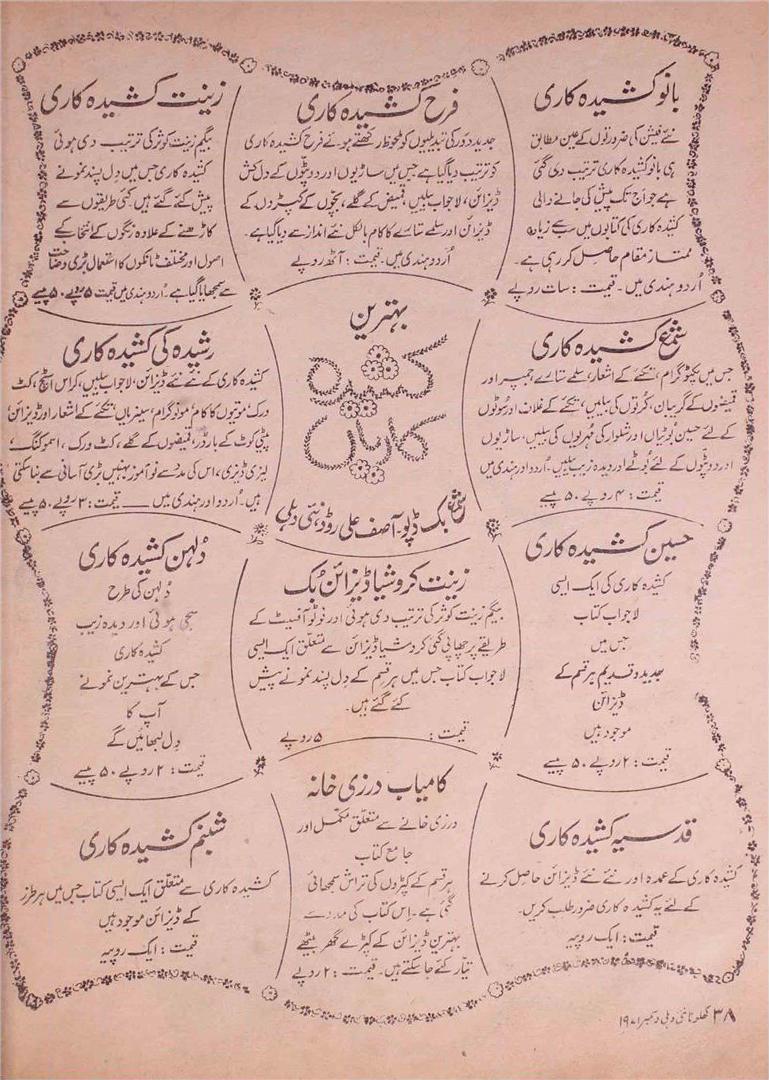 بانو کشیدہ کاری
نئے فیشن کی ضرورتوں کے عین مطابق
ہی بانو کشیدہ کاری ترتیب دی گئی
ہے جو آج تک پیش کی جانے والی
کشیدہ کاری کی کتابوں میں سب سے زیادہ
ممتاز مقام حاصل کر رہی ہے۔
اُردو ہندی میں۔ قیمت: سات روپے
فرح کشیدہ کاری
جدید دور کی تبدیلیوں کو ملحوظ رکھتے ہوئے فرح کشیدہ کاری
کو ترتیب دیا گیا ہے جس میں ساڑیوں اور دوپٹوں کے دل کش
ڈیزائن، لاجواب بیلیں، قمیض کے گلے، بچوں کے کپڑوں کے
ڈیزائن اور سلمے ستارے کا کام بالکل نئے انداز سے دیا گیا ہے۔
اُردو ہندی میں۔ قیمت: آٹھ روپے
زینت کشیدہ کاری
بیگم زینت کوثر کی ترتیب دی ہوئی
کشیدہ کاری جس میں دِل پسند نمونے
پیش کئے گئے ہیں۔ کئی طریقوں سے
کاڑھنے کے علاوہ رنگوں کے انتخاب کے
اصول اور مختلف ٹانکوں کا استعمال بڑی وضاحت
سے سمجھایا گیا ہے۔ اُردو ہندی میں قیمت ۵ روپے ۵۰ پیسے
بہترین
کشیدہ
کاریاں
شمع بک ڈپو۔ آصف علی روڈ، نئی دہلی
شمع کشیدہ کاری
جس میں پکٹوگرام، تکئے کے اشعار، سلمے ستارے، جمپر اور
قمیضوں کے گریبان، کُرتوں کی بیلیں، تکئے کے غلاف اور سُوٹوں
کے لئے حسین بُوٹیاں اور شلوار کی مُہریوں کی بیلیں، ساڑیوں
اور دوپٹوں کے لئے بُوٹے اور دیدہ زیب بیلیں۔ اُردو اور ہندی میں
قیمت: ۴ روپے ۵۰ پیسے
رشیدہ کی کشیدہ کاری
کشیدہ کاری کے نئے نئے ڈیزائن، لاجواب بیلیں، کراس اسٹچ، کٹ
ورک، موتیوں کا کام، مونوگرام، سینریاں، تکئے کے اشعار اور ڈیزائن،
پیٹی کوٹ کے بارڈر، قمیضوں کے گلے، کٹ ورک، اسموکنگ،
لیزی ڈیزی، اس کی مدد سے نو آموز بہنیں بڑی آسانی سے بنا سکتی
ہیں۔ اُردو اور ہندی میں ــــــ قیمت: ۳ روپے ۵۰ پیسے
حسین کشیدہ کاری
کشیدہ کاری کی ایک ایسی
لاجواب کتاب
جس میں
جدید و قدیم ہر قسم کے
ڈیزائن
موجود ہیں
قیمت: ۲ روپے ۵۰ پیسے
زینت کروشیا ڈیزائن بُک
بیگم زینت کوثر کی ترتیب دی ہوئی اور فوٹو آفسیٹ کے
طریقے پر چھاپی گئی کروشیا ڈیزائن سے متعلق ایک ایسی
لاجواب کتاب جس میں ہر قسم کے دِل پسند نمونے پیش
کئے گئے ہیں۔
قیمت: ۵ روپے
دُلہن کشیدہ کاری
دُلہن کی طرح
سجی ہوئی اور دیدہ زیب
کشیدہ کاری
جس کے بہترین نمونے
آپ کا
دِل لبھائیں گے
قیمت: ۲ روپے ۵۰ پیسے
قدسیہ کشیدہ کاری
کشیدہ کاری کے عمدہ اور نئے نئے ڈیزائن حاصل کرنے
کے لئے یہ کشیدہ کاری ضرور طلب کریں۔
قیمت: ایک روپیہ
کامیاب درزی خانہ
درزی خانے سے متعلق مکمل اور
جامع کتاب
ہر قسم کے کپڑوں کی تراش سمجھائی
گئی ہے۔ اِس کتاب کی مدد سے
بہترین ڈیزائن کے کپڑے گھر بیٹھے
تیار کئے جا سکتے ہیں۔ قیمت: ۲ روپے
شبنم کشیدہ کاری
کشیدہ کاری سے متعلق ایک ایسی کتاب جس میں ہر طرز
کے ڈیزائن موجود ہیں
قیمت: ایک روپیہ
۳۸ کھلونا نئی دہلی دسمبر ۱۹۷۱ء